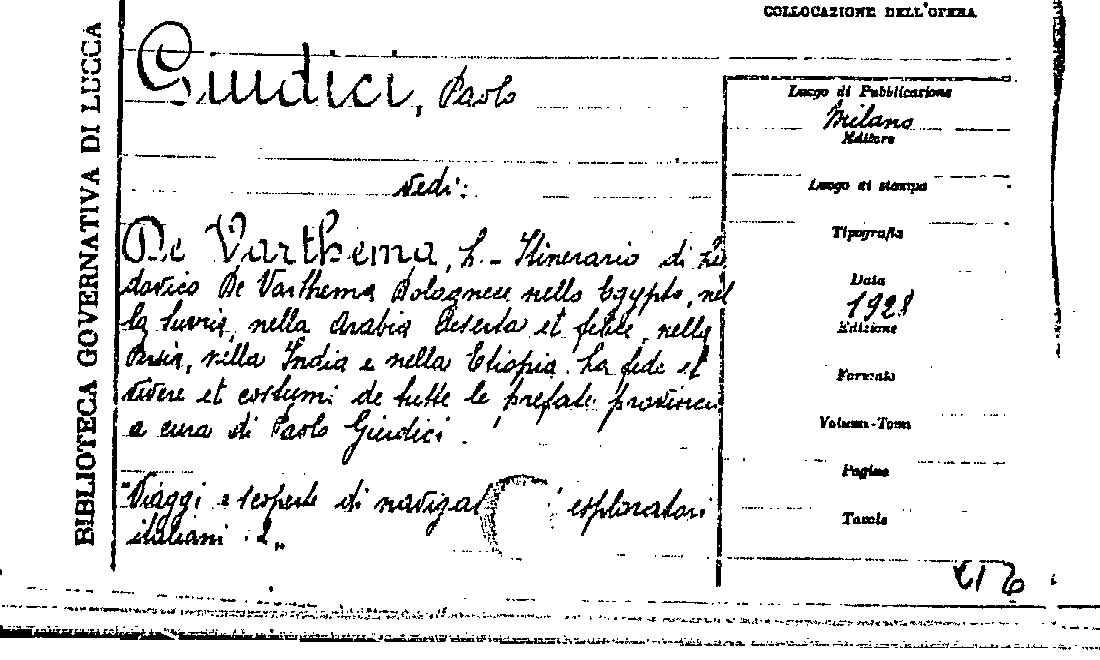 COLLOCAZIONE DELL'OPERA
BIBLIOTECA GOVERNATIVA DI LUCCA
Giudici, Paolo
vedi:
De Varthema, L. - Itinerario di Lu
dovico De Varthema Bolognese nello Egypto, nel
la Suvria, nella Arabia Deserta et felice, nella
Persia, nella India e nella Etiopia. La fede el
vivere et costumi de tutte le prefate provincie
a cura di Paolo Giudici.
"Viaggi e scoperte di navigat ed esploratori
italiani : 2„
Luogo di Pubblicazione
Milano
Editore
Luogo di stampa
Tipografia
Data
1928
Edizione
Formato
Volume-Tomo
Pagine
Tavole